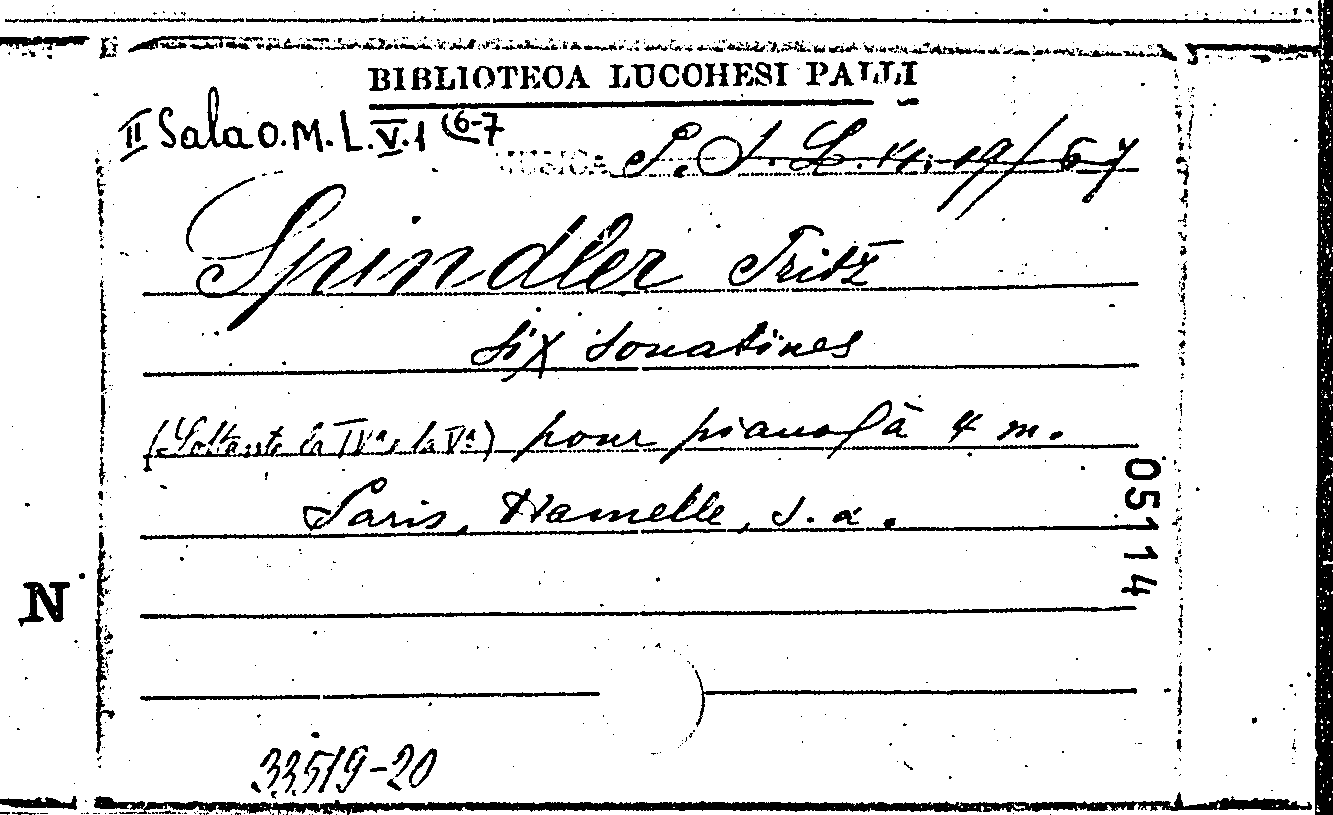 BIBLIOTECA LUCCHESI PALLI
II Sala O.M.L.V.1 (6-7
MUSICA
Spindler Fritz
Six Sonatines
(Soltanto la IVª e la Vª) pour piano à 4 m.
Paris, Hamelle, s.a.
05114
N
33519-20